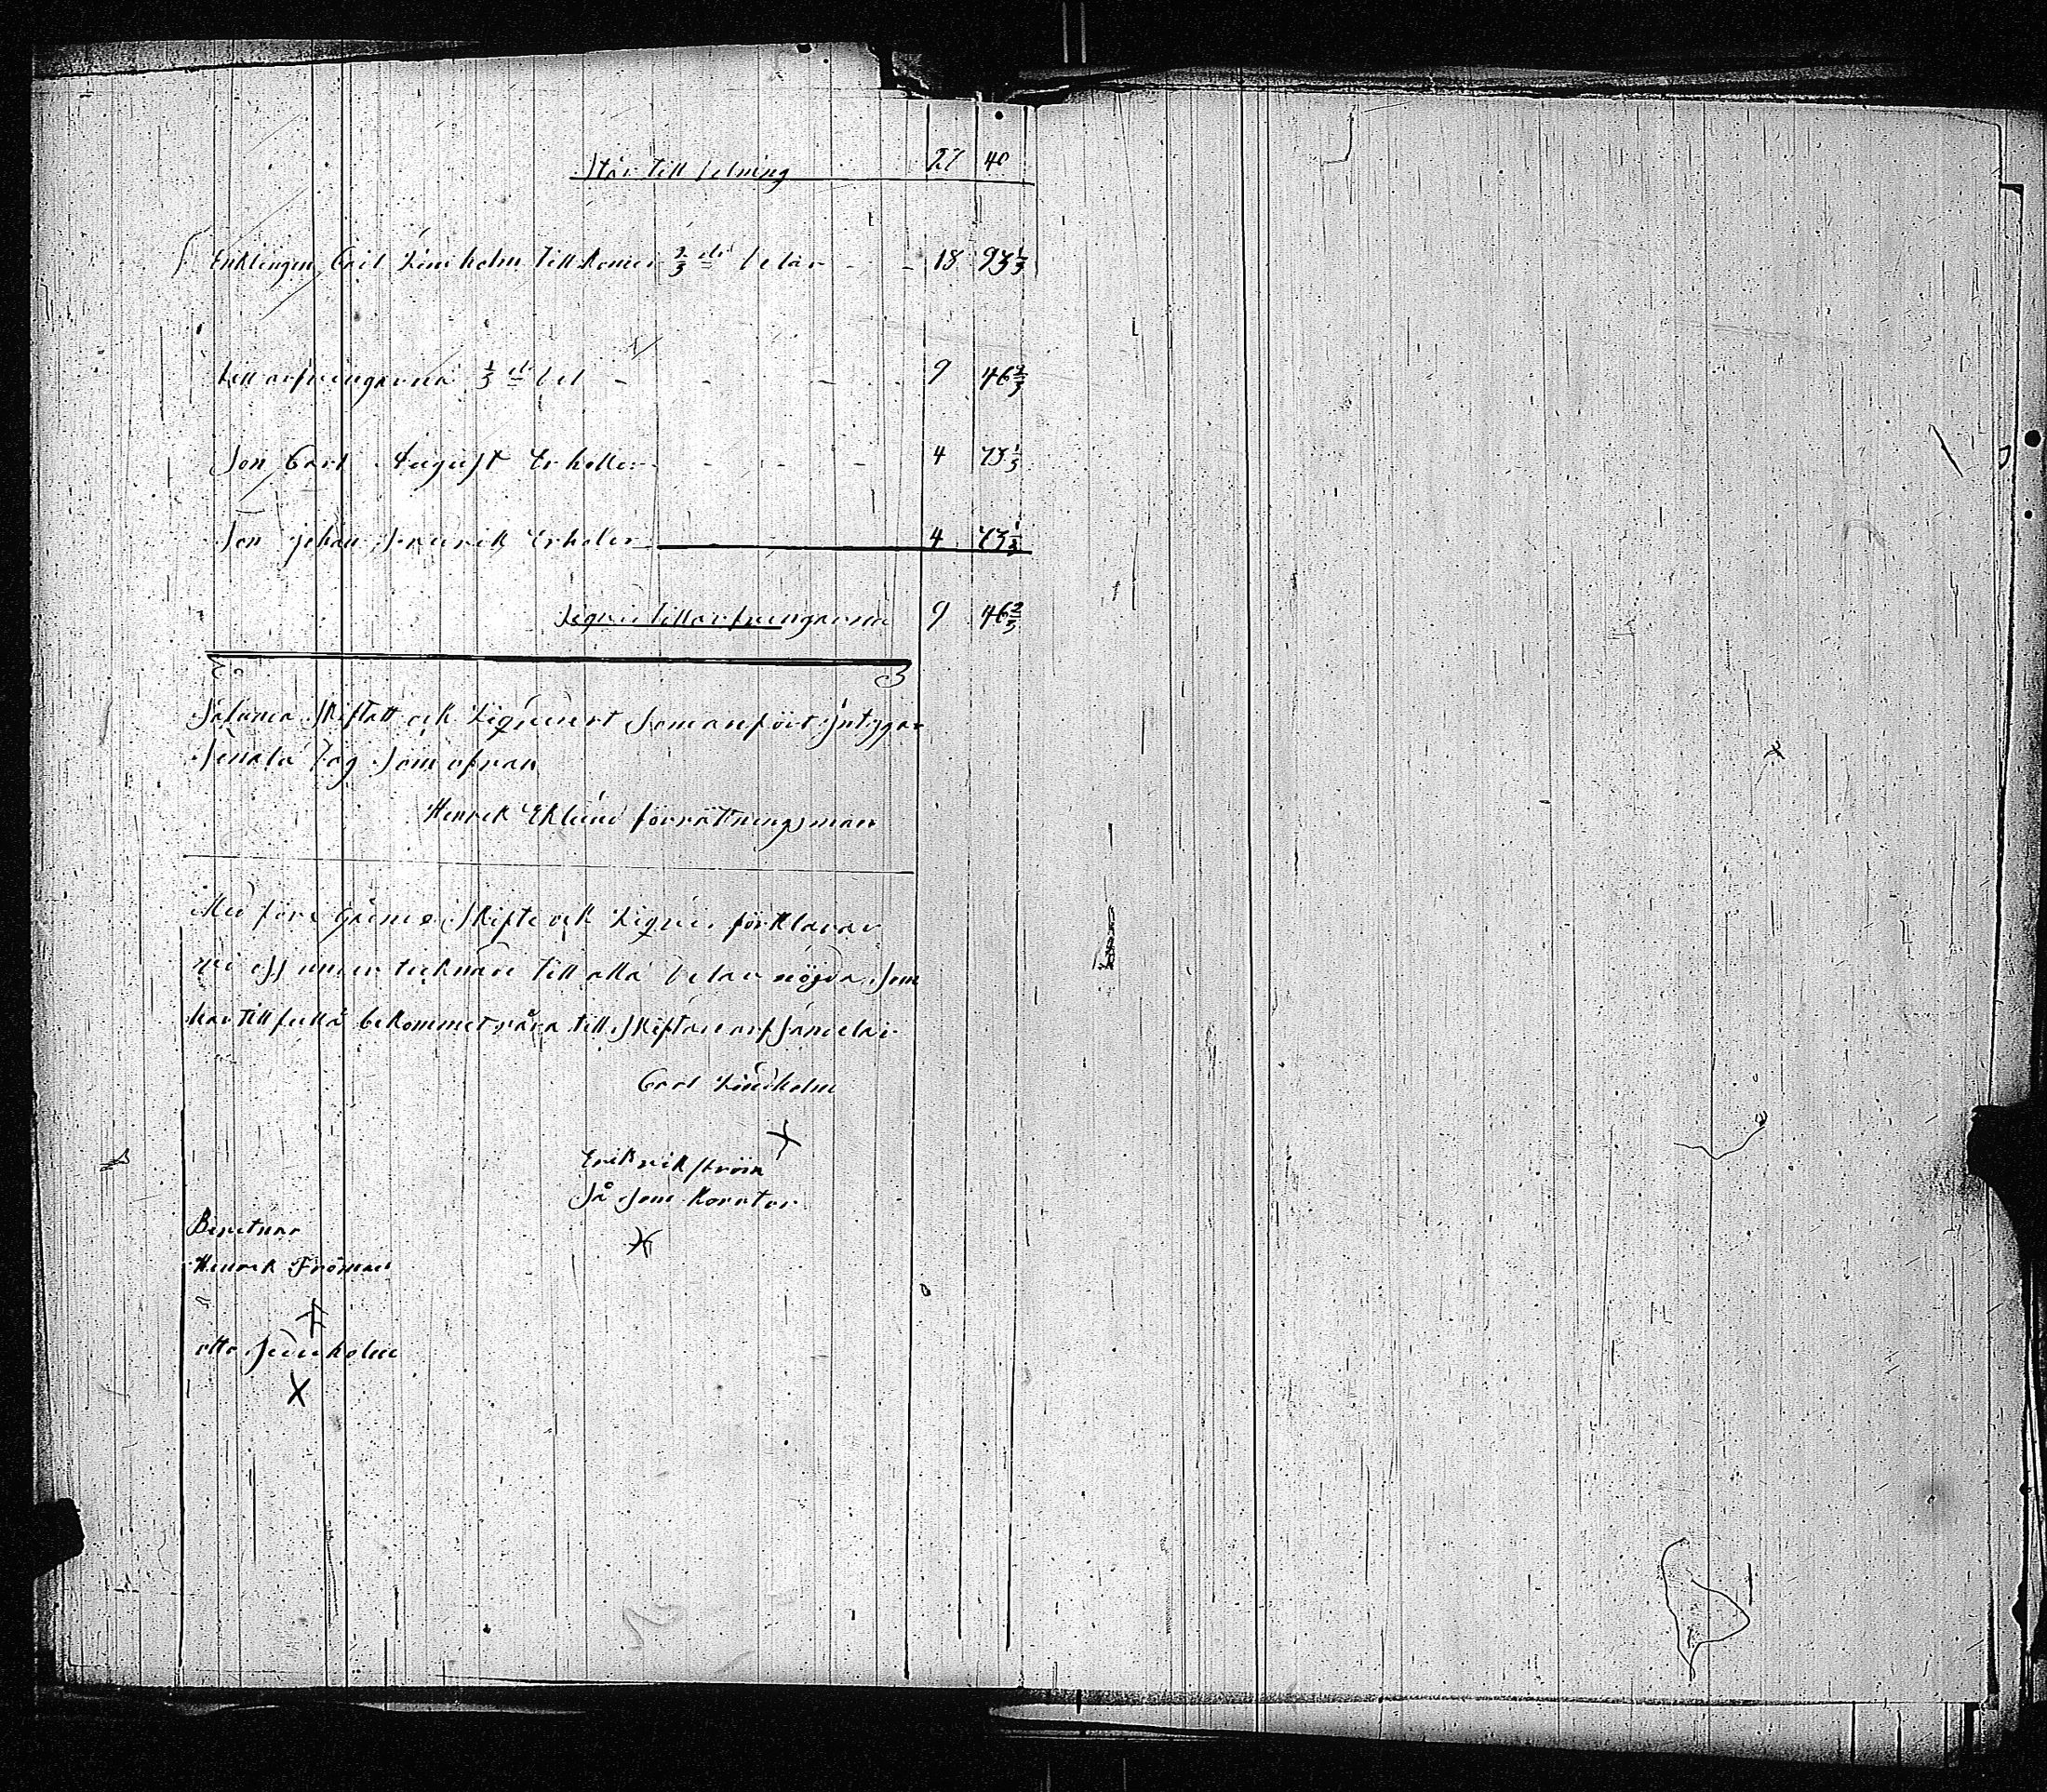 Står till delning 27 40
Enklingen Carl Lindholm tillkomer 2/3 del: delar - - 18 93 1/3
till arfvingarna 1/3 del del - - - - 9 46 2/3
Son Carl August Erholler - - - 4 73 1/3
Son johan Fredrik Erholer 4 73 1/3
Liqvid till arfvingarna 9 46 2/3
Sålunda Skiftatt och Liqviderat som anfört jntygar
Senata dag Som ofvan
Henrik Eklund förrättningsman
Med före Skifte och Liqvid förklarar
wi oss undertecknade till alla delar nöjda som
har till fullå bekommet våra till Skiftade arfsandelar
Carl Lindholm
Erik vikström
Så som Korator
Henrik Fröman
otto Lindholm